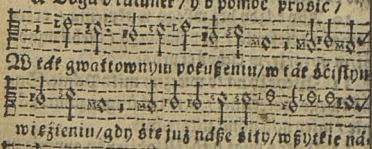 u Bogá o rátunek / y o pomoc prośić /
W ták gwałtownym pokußeniu / w ták śćisłym
więźieniu / gdy śię już náße śiły / wßytkie ná-